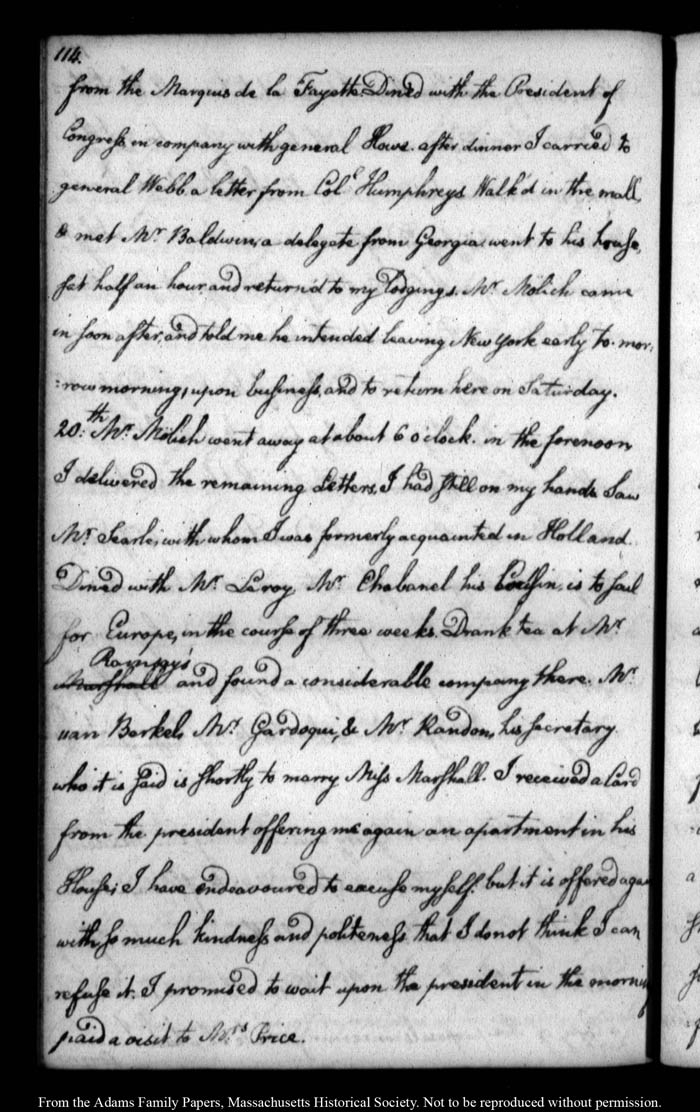 114.
from the Marquis de la Fayette Dined with the President of
Congress in company with general Howe. after dinner I carried to
general Webb a letter from Colº Humphreys Walk'd in the mall,
& met Mr. Baldwin, a delegate from Georgia: went to his house,
sat half an hour, and return'd to my lodgings. Mr. Molich came
in soon after, and told me he intended leaving New York early to-mor:
:row morning, upon business, and to return here on Saturday.
20:th Mr. Mölich went away at about 6 o'clock. in the forenoon
I delivered the remaining Letters, I had still on my hands Saw
Mr. Searle; with whom I was formerly acquainted in Holland.
Dined with Mr. Leroy Mr. Chabanel his Cousin, is to sail
for Europe, in the course of three weeks. Drank tea at Mr.
Ramsay's
Marshall and found a considerable company there. Mr.
van Berkel, Mr. Gardoqui, & Mr. Randon, his secretary
who it is said is shortly to marry Miss Marshall. I received a Card
from the president offering me again an apartment in his
House; I have endeavoured to excuse myself: but it is offered again
with so much kindness and politeness that I do not think I can
refuse it. I promised to wait upon the president in the morning
paid a visit to Mrs. Price.
From the Adams Family Papers, Massachusetts Historical Society. Not to be reproduced without permission.